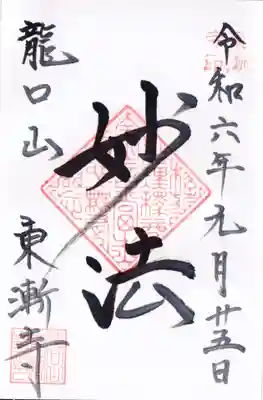 令和六年元月廿五日
妙法
龍口山
東漸寺